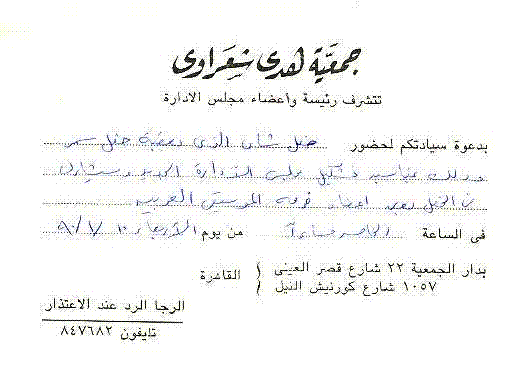 جمعية هدى شعراوى
تتشرف رئيسة وأعضاء مجلس الادارة
بدعوة سيادتكم لحضور حفل شاى الذى يعقبه حفل سمر
وذلك بمناسبة تشكيل مجلس الادارة الجديد وسيشارك
فى الحفل بعض اعضاء فرقة الموسيقى العربية
فى الساعة الخامسة مساءً من يوم الأربعاء
بدار الجمعية ٢٢ شارع قصر العينى
القاهرة
١٠٥٧ شارع كورنيش النيل
الرجا الرد عند الاعتذار
تليفون ٨٤٧٦٨٢